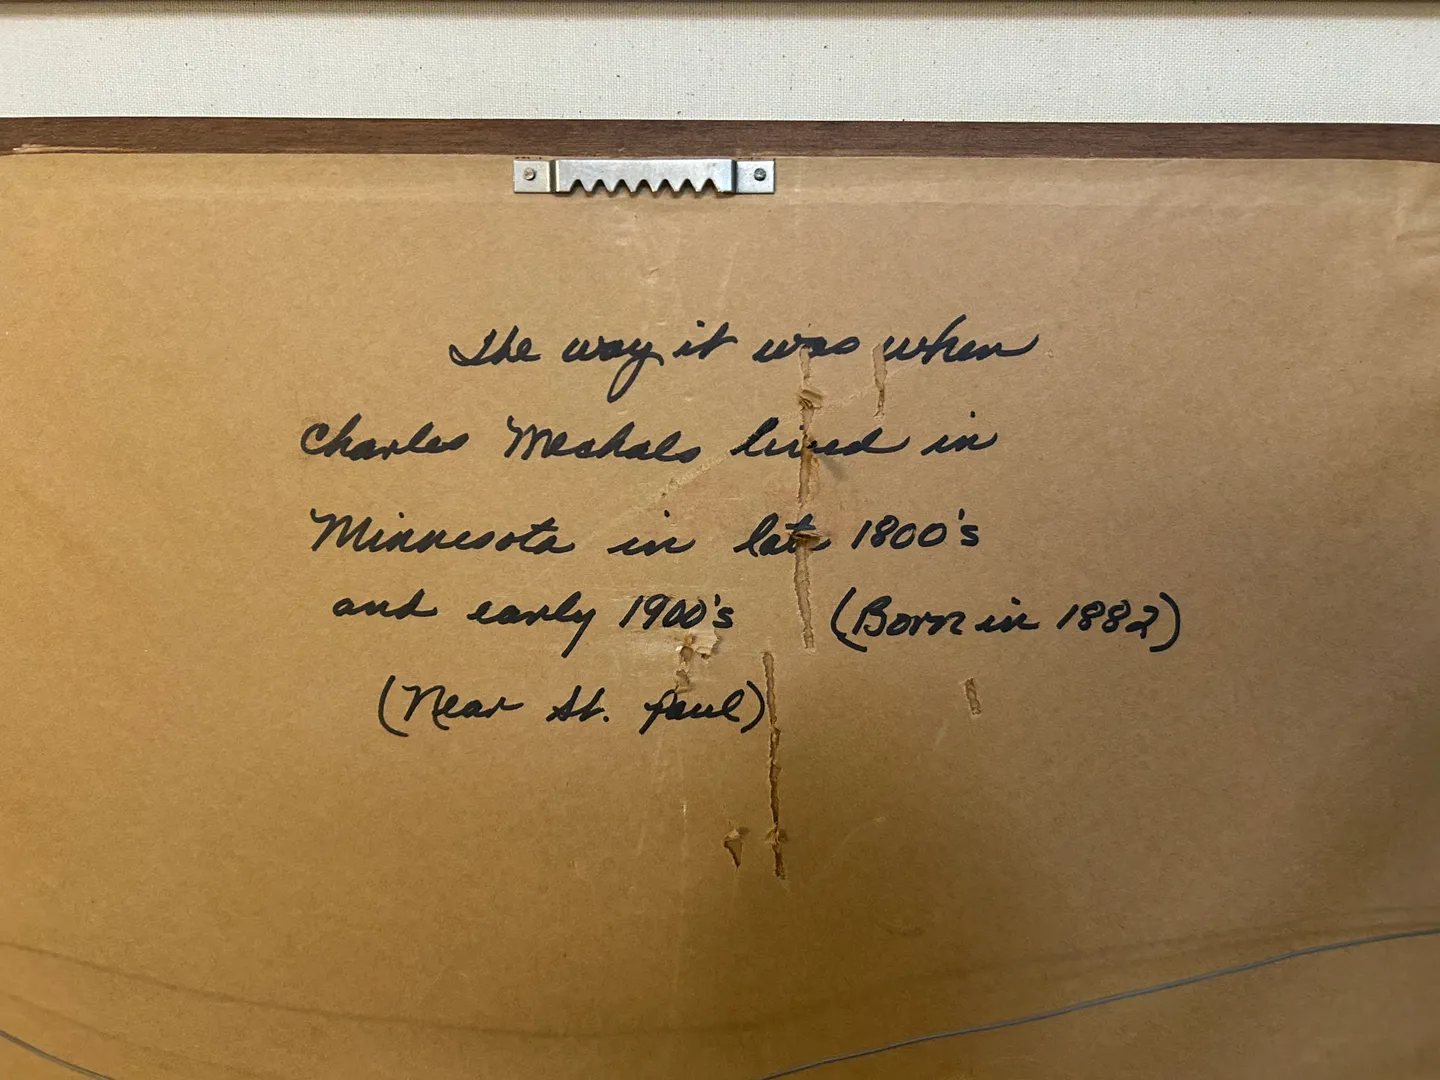 The way it was when
Charles Meshals lived in
Minnesota in late 1800's
and early 1900's (Born in 1882)
(Near St. Paul)